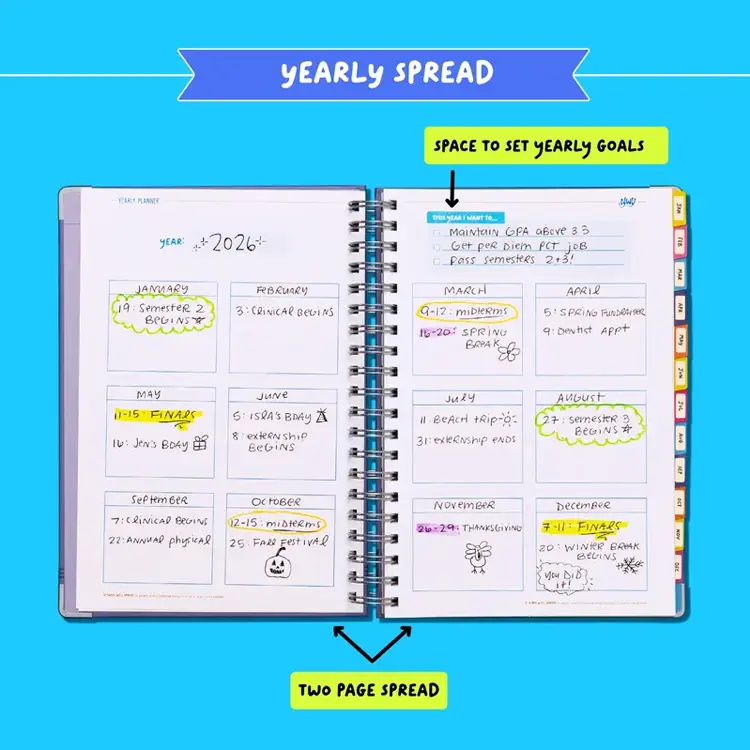 YEARLY SPREAD
SPACE TO SET YEARLY GOALS
YEARLY PLANNER
YEAR: 2026
JANUARY
19: Semester 2
BEGINS
FEBRUARY
3: CLINICAL BEGINS
MAY
11-15: FINALS
16: JEN'S BDAY
JUNE
5: ISLA'S BDAY
8: EXTERNSHIP
BEGINS
September
7: CLINICAL BEGINS
22: ANNUAL PHYSICAL
OCTOBER
12-15: MIDTERMS
25: FALL FESTIVAL
THIS YEAR I WANT TO...
MAINTAIN GPA above 3.3
Get per Diem PCT JOB
Pass semesters 2+3!
MARCH
9-12: MIDTERMS
16-20: SPRING
BREAK
APRIL
5: SPRING FUNDRAISER
9: Dentist Appt
JULY
11: BEACH TRIP
31: externship ends
AUGUST
27: semester 3
BEGINS
NOVEMBER
26-29: THANKSGIVING
December
7-11: FINALS
20: WINTER BREAK
BEGINS
YOU DID
it!
JAN
FEB
MAR
APR
MAY
JUN
JUL
AUG
SEP
OCT
NOV
DEC
TWO PAGE SPREAD